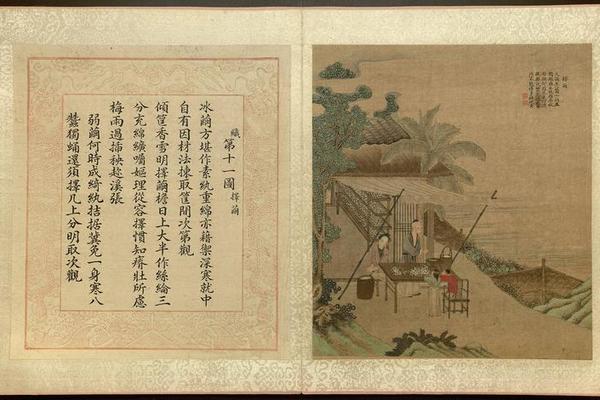 織第十一圖 擇繭
冰繭方堪作素紈重綿亦藉禦深寒就中
自有因材法揀取筐間次第觀
傾筐香雪明擇繭檐日上大半作絲綸三
分充綿纊嫗理從容擇慣知瘠壯所處
梅雨過插秧趁溪張
弱繭何時成綺紈拮据冀免一身寒八
蠶獨蛹還須擇几上分明取次觀
擇繭